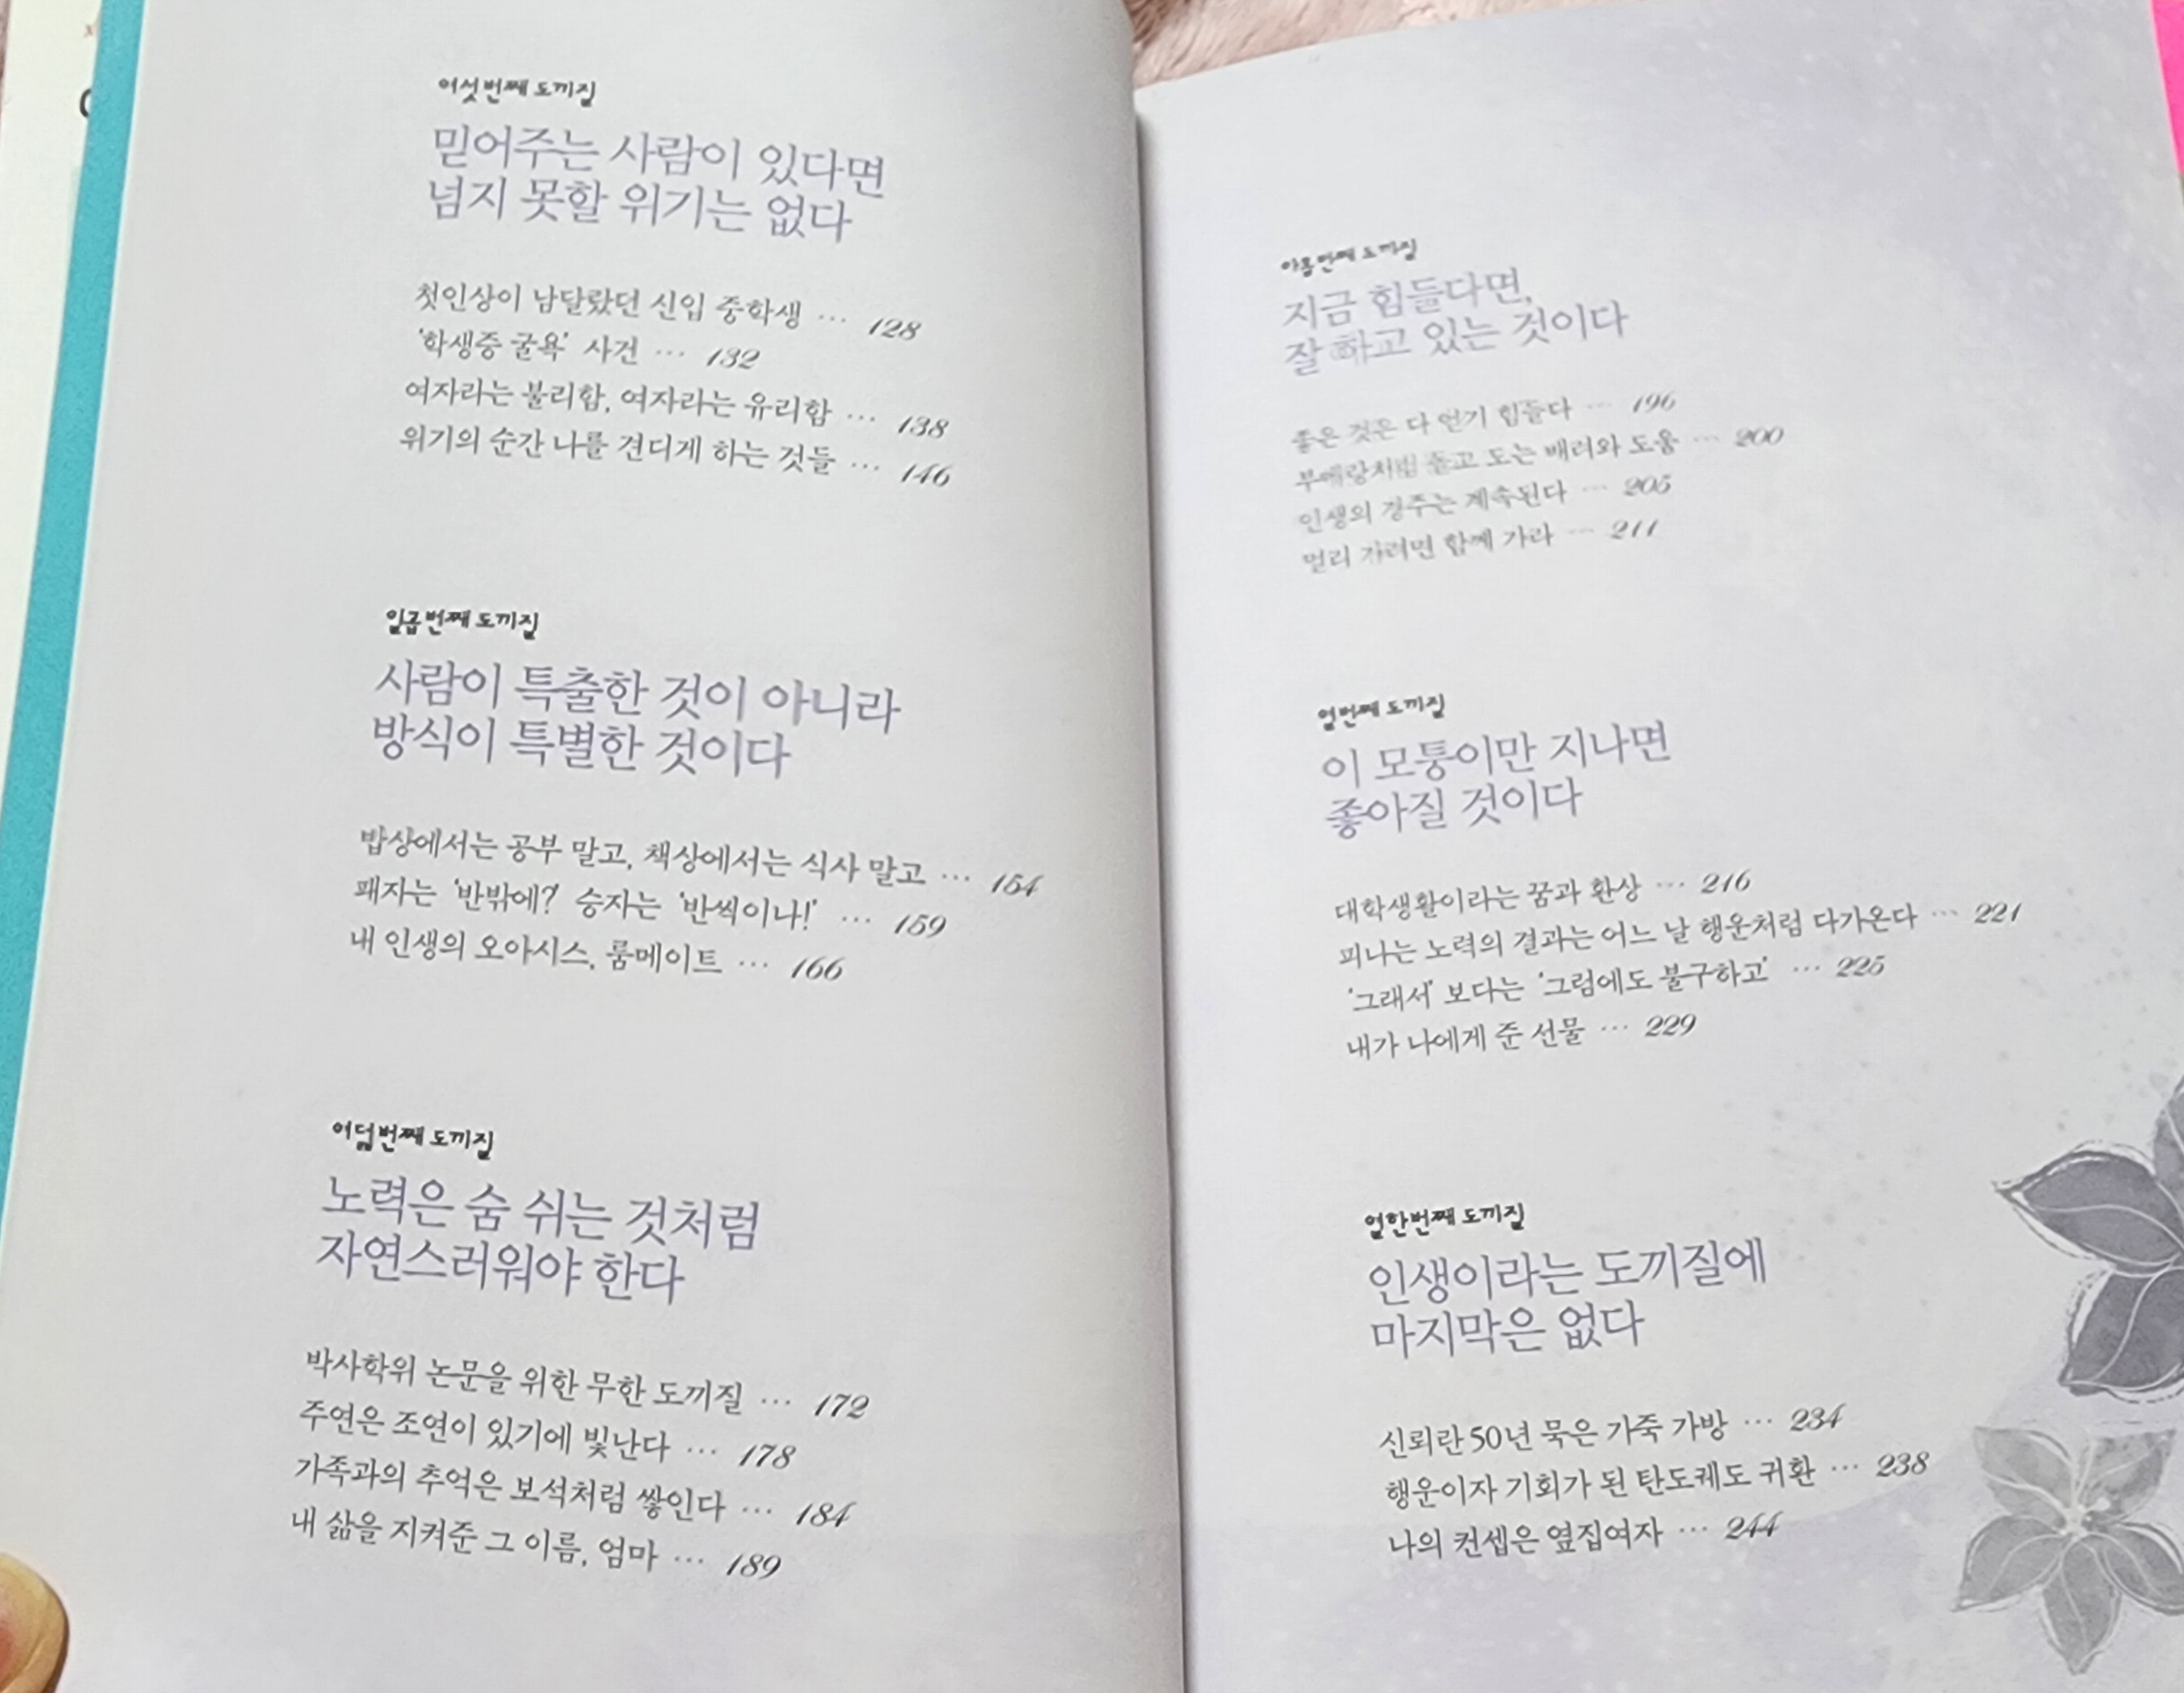 여섯 번째 도끼질
믿어주는 사람이 있다면
넘지 못할 위기는 없다
첫인상이 남달랐던 신입 중학생 … 128
‘학생증 굴욕’ 사건 … 132
여자라는 불리함, 여자라는 유리함 … 138
위기의 순간 나를 견디게 하는 것들 … 146
일곱 번째 도끼질
사람이 특출한 것이 아니라
방식이 특별한 것이다
밥상에서는 공부 말고, 책상에서는 식사 말고 … 154
패자는 ‘반밖에?’ 승자는 ‘반씩이나!’ … 159
내 인생의 오아시스, 룸메이트 … 166
여덟 번째 도끼질
노력은 숨 쉬는 것처럼
자연스러워야 한다
박사학위 논문을 위한 무한 도끼질 … 172
주연은 조연이 있기에 빛난다 … 178
가족과의 추억은 보석처럼 쌓인다 … 184
내 삶을 지켜준 그 이름, 엄마 … 189
아홉 번째 도끼질
지금 힘들다면,
잘 하고 있는 것이다
좋은 것은 다 얻기 힘들다 … 196
부메랑처럼 돌고 도는 배려와 도움 … 200
인생의 경주는 계속된다 … 205
멀리 가려면 함께 가라 … 211
열 번째 도끼질
이 모퉁이만 지나면
좋아질 것이다
대학생활이라는 꿈과 환상 … 216
피나는 노력의 결과는 어느 날 행운처럼 다가온다 … 221
‘그래서’ 보다는 ‘그럼에도 불구하고’ … 225
내가 나에게 준 선물 … 229
열한 번째 도끼질
인생이라는 도끼질에
마지막은 없다
신뢰란 50년 묵은 가죽 가방 … 234
행운이자 기회가 된 탄도궤도 귀환 … 238
나의 컨셉은 옆집여자 … 244